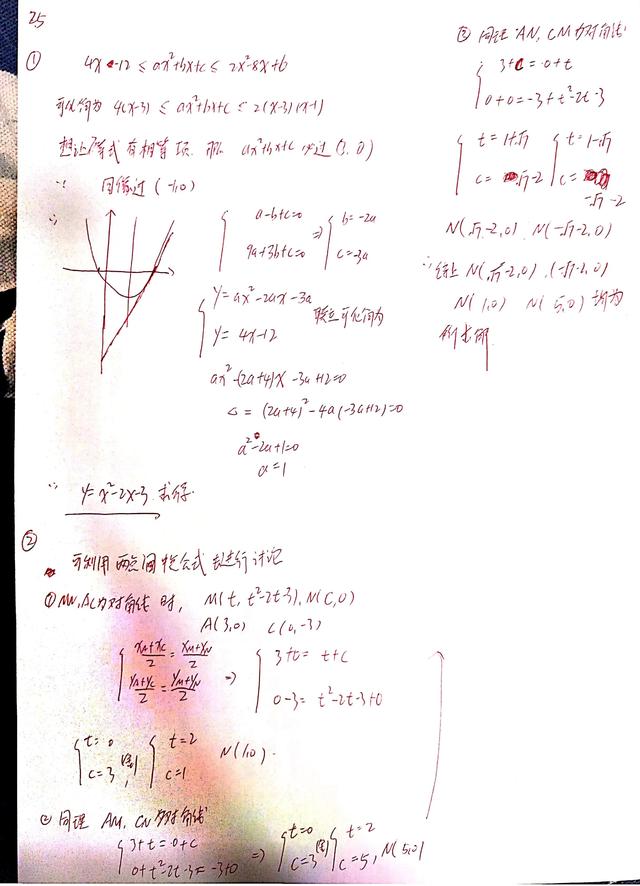 25
① 4x-12 ≤ ax²+bx+c ≤ 2x²-8x+6
可化简为 4(x-3) ≤ ax²+bx+c ≤ 2(x-3)(x-1)
想让不等式有相等项 那 ax²+bx+c 必过 (3,0)
∵ 图像过 (-1,0)
∴ { a-b+c=0 ⇒ { b=-2a
9a+3b+c=0 c=-3a
{ y=ax²-2ax-3a
y=4x-12 联立可化简为
ax²-(2a+4)x-3a+12=0
△=(2a+4)²-4a(-3a+12)=0
a²-2a+1=0
a=1
∴ y=x²-2x-3 求得.
② 可利用两点间中点公式 进行讨论
① MN,AC为对角线时, M(t, t²-2t-3), N(C,0)
A(3,0) C(0,-3)
{ xA+xC/2 = xM+xN/2 ⇒ { 3+0= t+c
yA+yC/2 = yM+yN/2 0-3= t²-2t-3+0
{ t=0 { t=2
c=3 (舍), c=1 N(1,0).
② 同理 AM, CN为对角线
{ 3+t=0+c ⇒ { t=0 { t=2
0+t²-2t-3=-3+0 c=3 (舍) c=5, N(5,0)
③ 同理 AN, CM为对角线
{ 3+c=0+t
0+0=-3+t²-2t-3
{ t=1+√7 { t=1-√7
c=√7-2 c= -√7-2
N(√7-2,0) N(-√7-2,0)
∴ 综上 N(√7-2,0), (-√7-2,0)
N(1,0) N(5,0) 均为
所求解